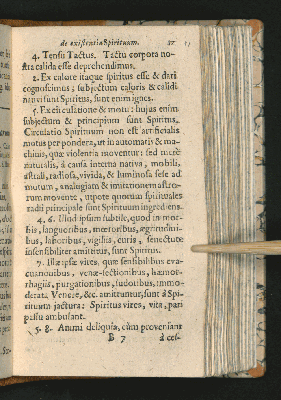 de existentia Spirituum. 37
4. Tensu Tactus. Tactu corpora no-
stra calida esse deprehendimus.
2. Ex calore itaque spiritus esse & dari
cognoscimus; subjectum caloris & calidi
nativi sunt Spiritus, sunt enim ignes.
5. Ex circulatione & motu: hujus enim
subjectum & principium sunt Spiritus.
Circulatio Spirituum non est artificialis
motus per pondera, ut in automatis & ma-
chinis, quæ violentia moventur: sed mere
naturalis, à causa interna nativa, mobili,
astrali, radiosa, vivida, & luminosa sese ad
motum, analogiam & imitationem astro-
rum movente, utpote quorum spirituales
radii principale sunt Spirituum ingrediens.
4. 6. Illud ipsum subtile, quod in mor-
bis, languoribus, mœroribus, ægritudini-
bus, laboribus, vigiliis, curis, senectute
insensibiliter amittitur, sunt Spiritus.
7. Illæ ipsæ vires, quæ sensibilibus eva-
cuationibus, venæ-sectionibus, hæmor-
rhagiis, purgationibus, sudoribus, immo-
derata Venere, &c. amittuntur, sunt à Spi-
rituum jactura: Spiritus vires, vita, pari
passu ambulant.
5. 8. Animi deliquia, cùm proveniant
B 7 à ccl-